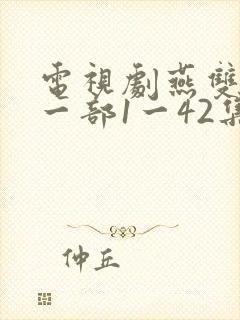 電視劇燕雙
一部1一42集
仲丘